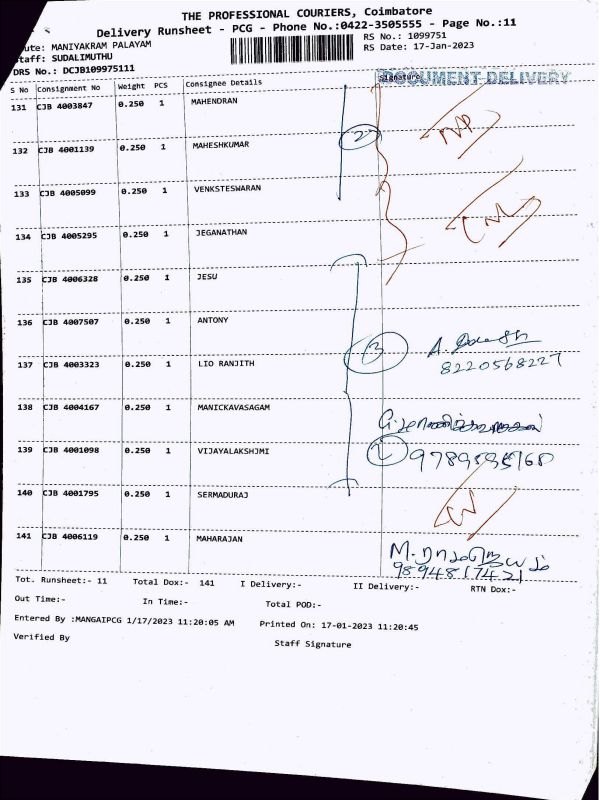 THE PROFESSIONAL COURIERS, Coimbatore
Delivery Runsheet - PCG - Phone No.:0422-3505555 - Page No.:11
ute: MANIYAKRAM PALAYAM RS No.: 1099751
taff: SUDALIMUTHU RS Date: 17-Jan-2023
DRS No.: DCJB109975111
S No Consignment No Weight PCS Consignee Details Signature DOCUMENT DELIVERY
131 CJB 4003847 0.250 1 MAHENDRAN
132 CJB 4001139 0.250 1 MAHESHKUMAR 2
133 CJB 4005099 0.250 1 VENKSTESWARAN
134 CJB 4005295 0.250 1 JEGANATHAN
135 CJB 4006328 0.250 1 JESU
136 CJB 4007507 0.250 1 ANTONY
137 CJB 4003323 0.250 1 LIO RANJITH 3
8220568227
138 CJB 4004167 0.250 1 MANICKAVASAGAM
139 CJB 4001098 0.250 1 VIJAYALAKSHJMI
140 CJB 4001795 0.250 1 SERMADURAJ
141 CJB 4006119 0.250 1 MAHARAJAN
9894817421
Tot. Runsheet:- 11 Total Dox:- 141 I Delivery:- II Delivery:- RTN Dox:-
Out Time:- In Time:- Total POD:-
Entered By :MANGAIPCG 1/17/2023 11:20:05 AM Printed On: 17-01-2023 11:20:45
Verified By Staff Signature